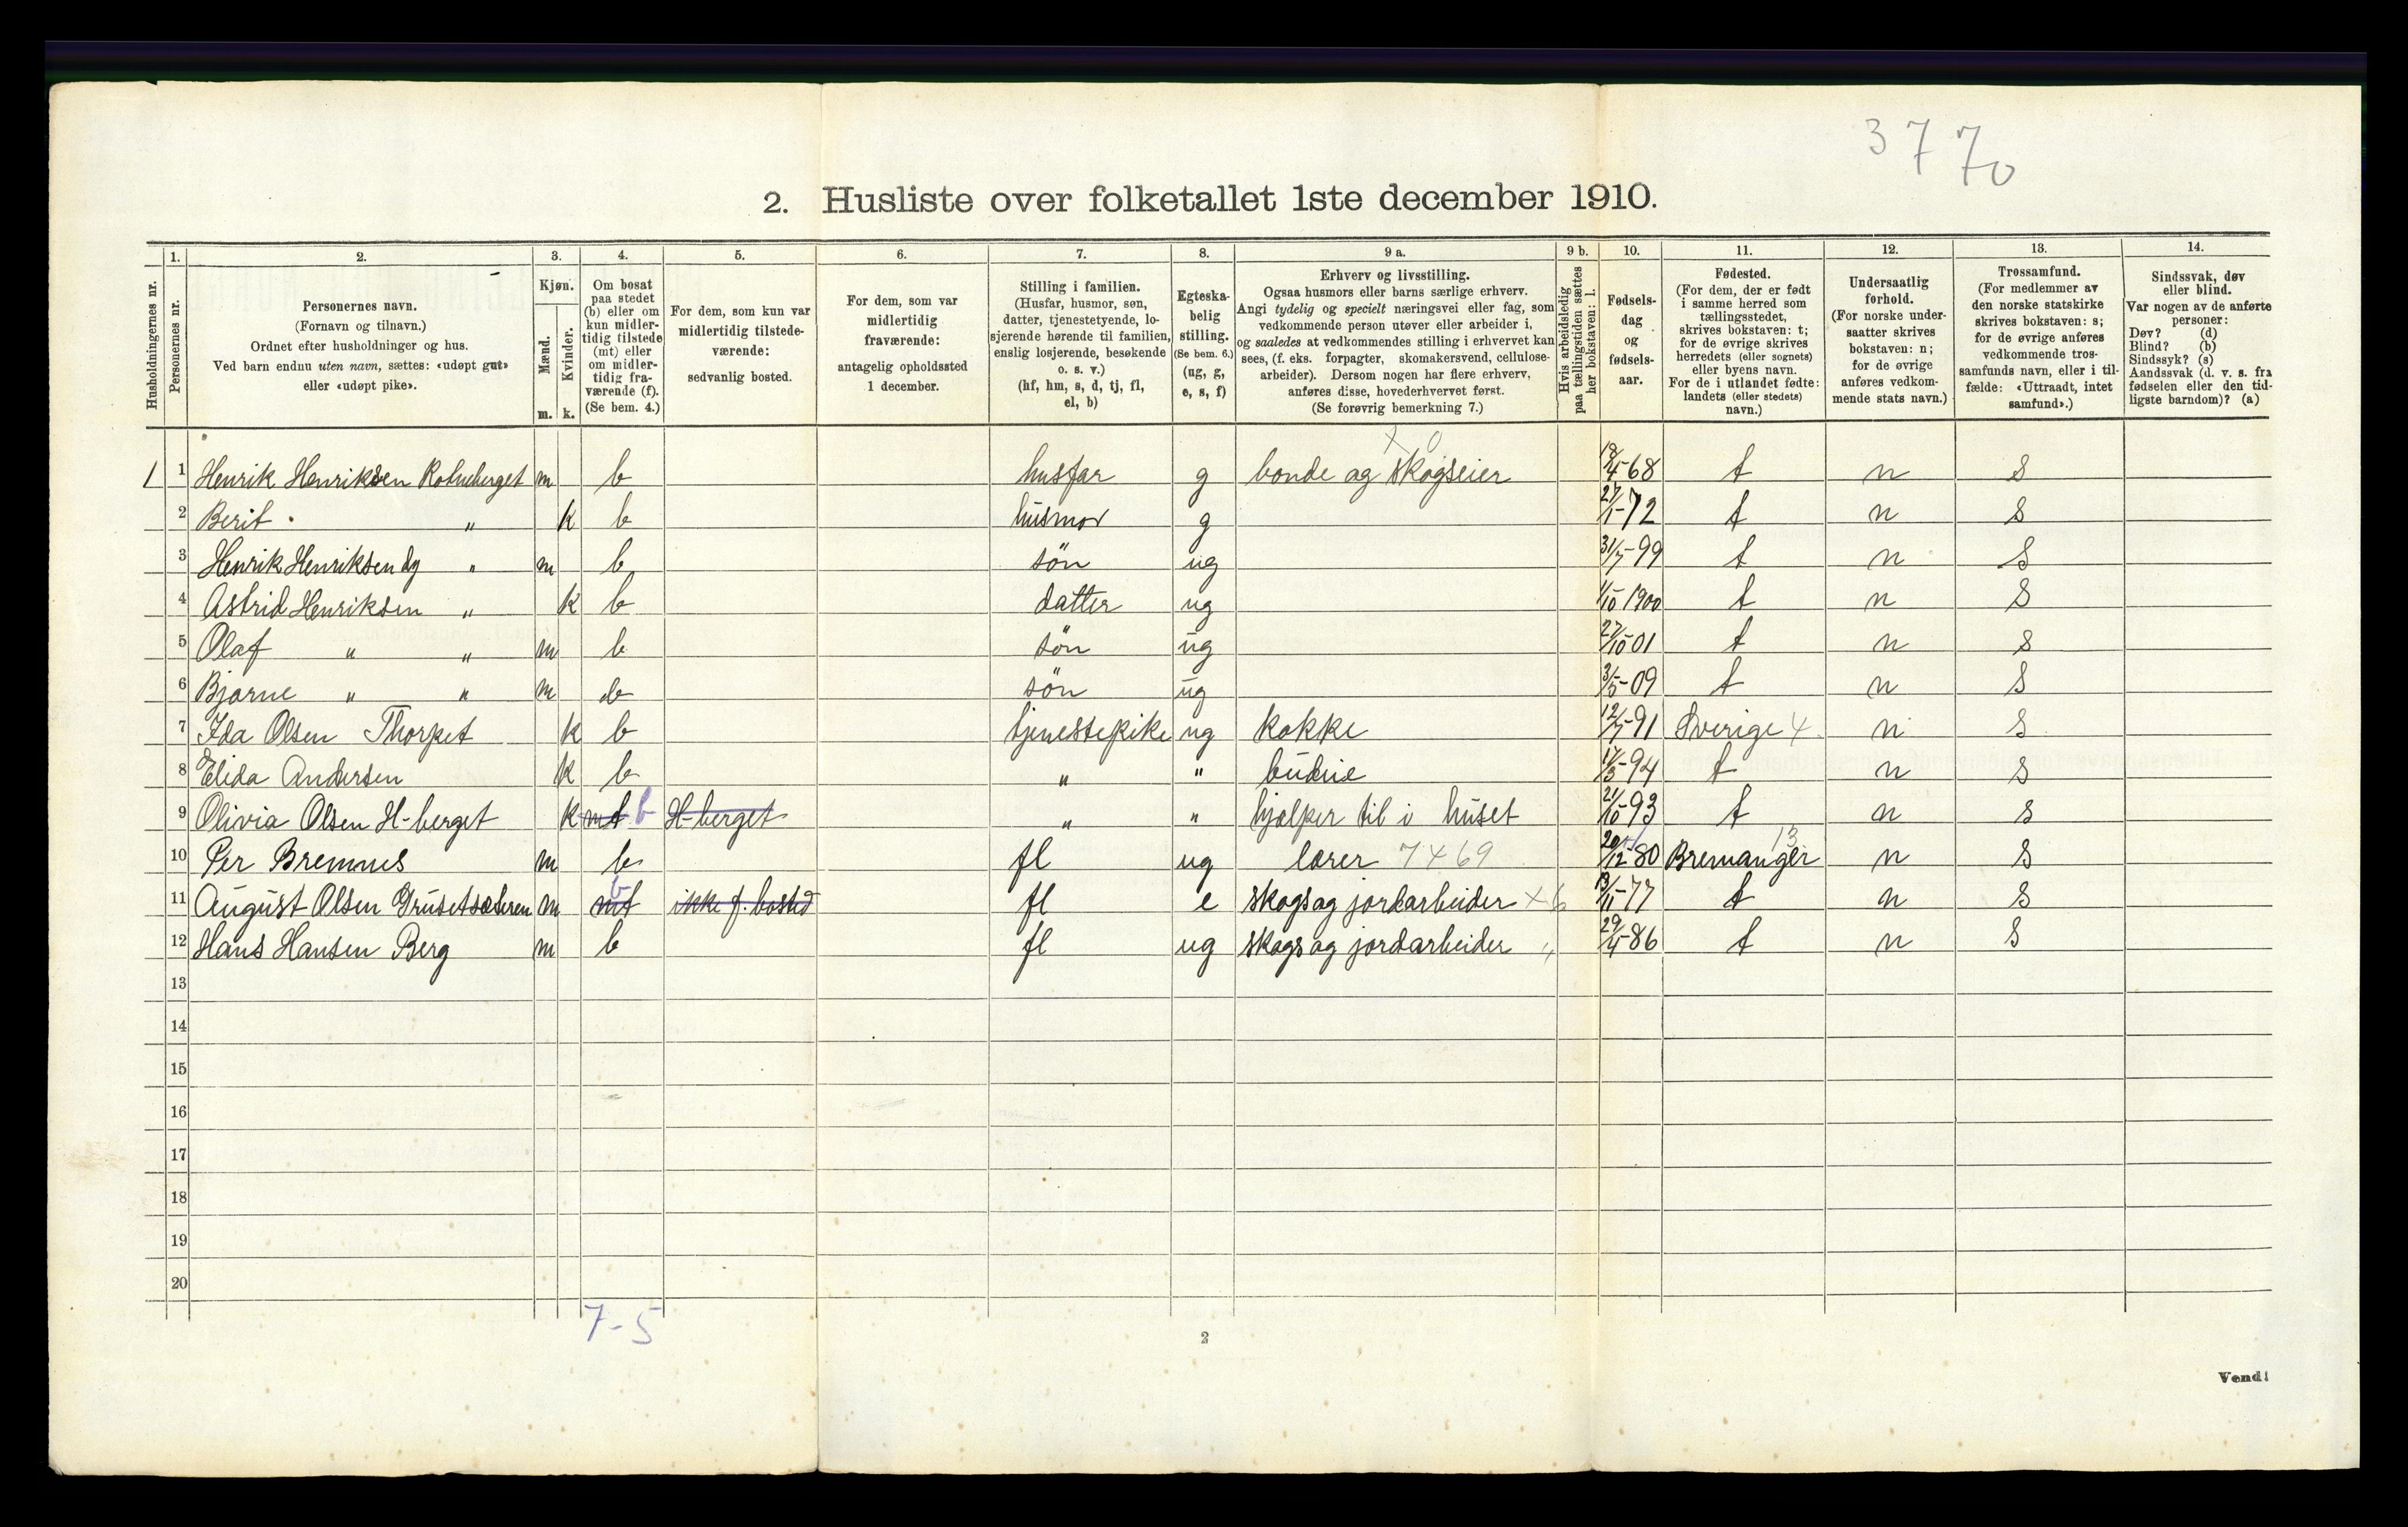 3770
2. Husliste over folketallet 1ste december 1910.
Husholdningernes nr.
1. Personernes nr.
2. Personernes navn. (Fornavn og tilnavn.) Ordnet efter husholdninger og hus. Ved barn endnu uten navn, sættes: «udøpt gut» eller «udøpt pike».
3. Kjøn. Mænd. m. Kvinder. k.
4. Om bosat paa stedet (b) eller om kun midlertidig tilstede (mt) eller om midlertidig fraværende (f). (Se bem. 4.)
5. For dem, som kun var midlertidig tilstedeværende: sedvanlig bosted.
6. For dem, som var midlertidig fraværende: antagelig opholdssted 1 december.
7. Stilling i familien. (Husfar, husmor, søn, datter, tjenestetyende, losjerende hørende til familien, enslig losjerende, besøkende o. s. v.) (hf, hm, s, d, tj, fl, el, b)
8. Egteskabelig stilling. (Se bem. 6.) (ug, g, e, s, f)
9 a. Erhverv og livsstilling. Ogsaa husmors eller barns særlige erhverv. Angi tydelig og specielt næringsvei eller fag, som vedkommende person utøver eller arbeider i, og saaledes at vedkommendes stilling i erhvervet kan sees, (f. eks. forpagter, skomakersvend, cellulosearbeider). Dersom nogen har flere erhverv, anføres disse, hovederhvervet først. (Se forøvrig bemerkning 7.)
9 b. Hvis arbeidsledig paa tællingstiden sættes her bokstaven: l.
10. Fødselsdag og fødselsaar.
11. Fødested. (For dem, der er født i samme herred som tællingsstedet, skrives bokstaven: t; for de øvrige skrives herredets (eller sognets) eller byens navn. For de i utlandet fødte: landets (eller stedets) navn.)
12. Undersaatlig forhold. (For norske undersaatter skrives bokstaven: n; for de øvrige anføres vedkommende stats navn.)
13. Trossamfund. (For medlemmer av den norske statskirke skrives bokstaven: s; for de øvrige anføres vedkommende trossamfunds navn, eller i tilfælde: «Uttraadt, intet samfund».)
14. Sindssvak, døv eller blind. Var nogen av de anførte personer: Døv? (d) Blind? (b) Sindssyk? (s) Aandssvak (d. v. s. fra fødselen eller den tidligste barndom)? (a)
1 1 Henrik Henriksen m b husfar g bonde og skogseier 18/4-68 t n s
2 Berit " k b husmor g 27/1-72 t n s
3 Henrik Henriksen dy " m b søn ug 31/7-99 t n s
4 Astrid Henriksen " k b datter ug 1/10 1900 t n s
5 Olaf " " m b søn ug 27/10 01 t n s
6 Bjarne " " m b søn ug 3/5-09 t n s
7 Ida Olsen Thorpet k b tjenestepike ug kokke 12/7-91 Sverige 4 n s
8 Elida Andersen k b " " budeie 17/3-94 t n s
9 Olivia Olsen H-berget k mt b H-berget " " hjælper til i huset 21/10-93 t n s
10 Per Bremnes m b fl ug lærer 7469 20/12-80 Bremanger 13 n s
11 August Olsen Grusetsæteren m mt b ikke f. bosted fl e skogs og jordarbeider x 6 13/11-77 t n s
12 Hans Hansen Berg m b fl ug skogs og jordarbeider " 29/4-86 t n s
13
14
15
16
17
18
19
20
7-5
2
Vend!